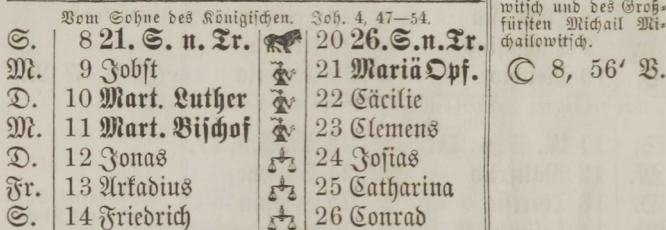 Vom Sohne des Königischen. Joh. 4, 47—54.
S. 8 21. S. n. Tr. 20 26. S. n. Tr.
M. 9 Jobst 21 Mariä Opf.
D. 10 Mart. Luther 22 Cäcilie
M. 11 Mart. Bischof 23 Clemens
D. 12 Jonas 24 Josias
Fr. 13 Arkadius 25 Catharina
S. 14 Friedrich 26 Conrad
witsch und des Groß-
fürsten Michail Mi-
chailowitsch.
☾ 8, 56' V.